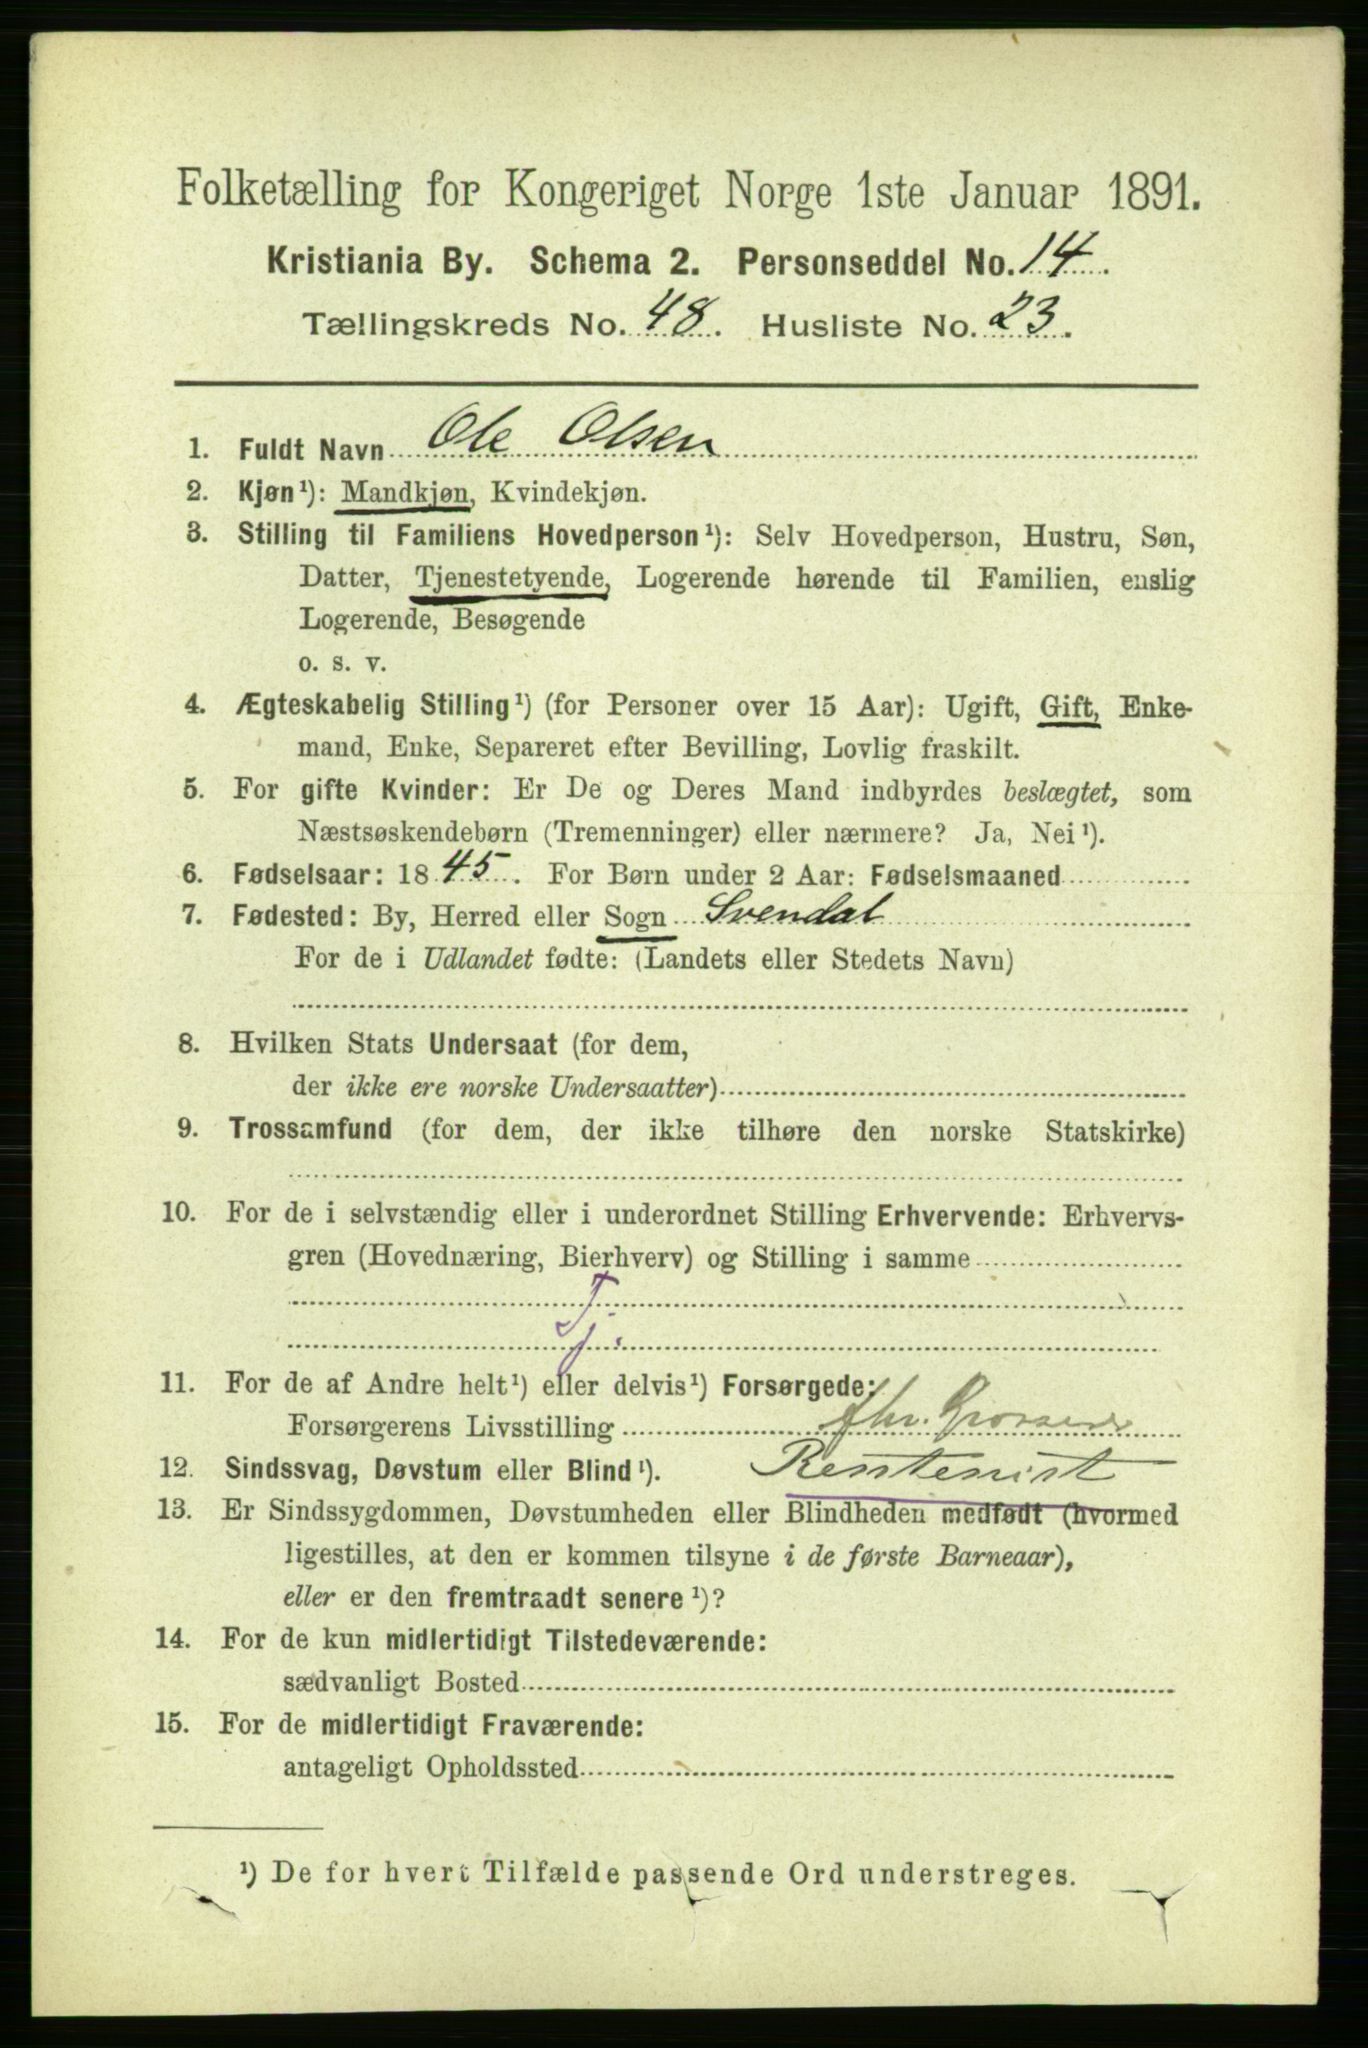 Folketælling for Kongeriget Norge 1ste Januar 1891.
Kristiania By. Schema 2. Personseddel No. 14.
Tællingskreds No. 48. Husliste No. 23.
1. Fuldt Navn Ole Olsen
2. Kjøn¹): Mandkjøn, Kvindekjøn.
3. Stilling til Familiens Hovedperson¹): Selv Hovedperson, Hustru, Søn,
Datter, Tjenestetyende, Logerende hørende til Familien, enslig
Logerende, Besøgende
o. s. v.
4. Ægteskabelig Stilling¹) (for Personer over 15 Aar): Ugift, Gift, Enke-
mand, Enke, Separeret efter Bevilling, Lovlig fraskilt.
5. For gifte Kvinder: Er De og Deres Mand indbyrdes beslægtet, som
Næstsøskendebørn (Tremenninger) eller nærmere? Ja, Nei¹).
6. Fødselsaar: 1845. For Børn under 2 Aar: Fødselsmaaned
7. Fødested: By, Herred eller Sogn Svendal
For de i Udlandet fødte: (Landets eller Stedets Navn)
8. Hvilken Stats Undersaat (for dem,
der ikke ere norske Undersaatter)
9. Trossamfund (for dem, der ikke tilhøre den norske Statskirke)
10. For de i selvstændig eller i underordnet Stilling Erhvervende: Erhvervs-
gren (Hovednæring, Bierhverv) og Stilling i samme
Tj.
11. For de af Andre helt¹) eller delvis¹) Forsørgede:
Forsørgerens Livsstilling
12. Sindssvag, Døvstum eller Blind¹). Rentenist
13. Er Sindssygdommen, Døvstumheden eller Blindheden medfødt (hvormed
ligestilles, at den er kommen tilsyne i de første Barneaar),
eller er den fremtraadt senere¹)?
14. For de kun midlertidigt Tilstedeværende:
sædvanligt Bosted
15. For de midlertidigt Fraværende:
antageligt Opholdssted
¹) De for hvert Tilfælde passende Ord understreges.